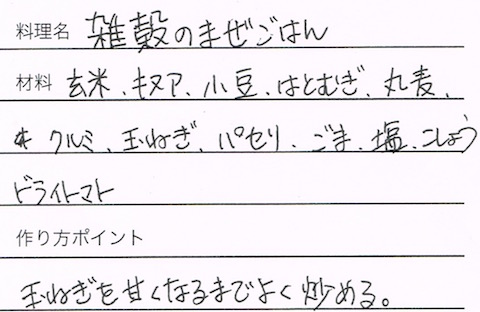 料理名 雑穀のまぜごはん
材料 玄米、キヌア、小豆、はとむぎ、丸麦、
クルミ、玉ねぎ、パセリ、ごま、塩、こしょう
ドライトマト
作り方ポイント
玉ねぎを甘くなるまでよく炒める。